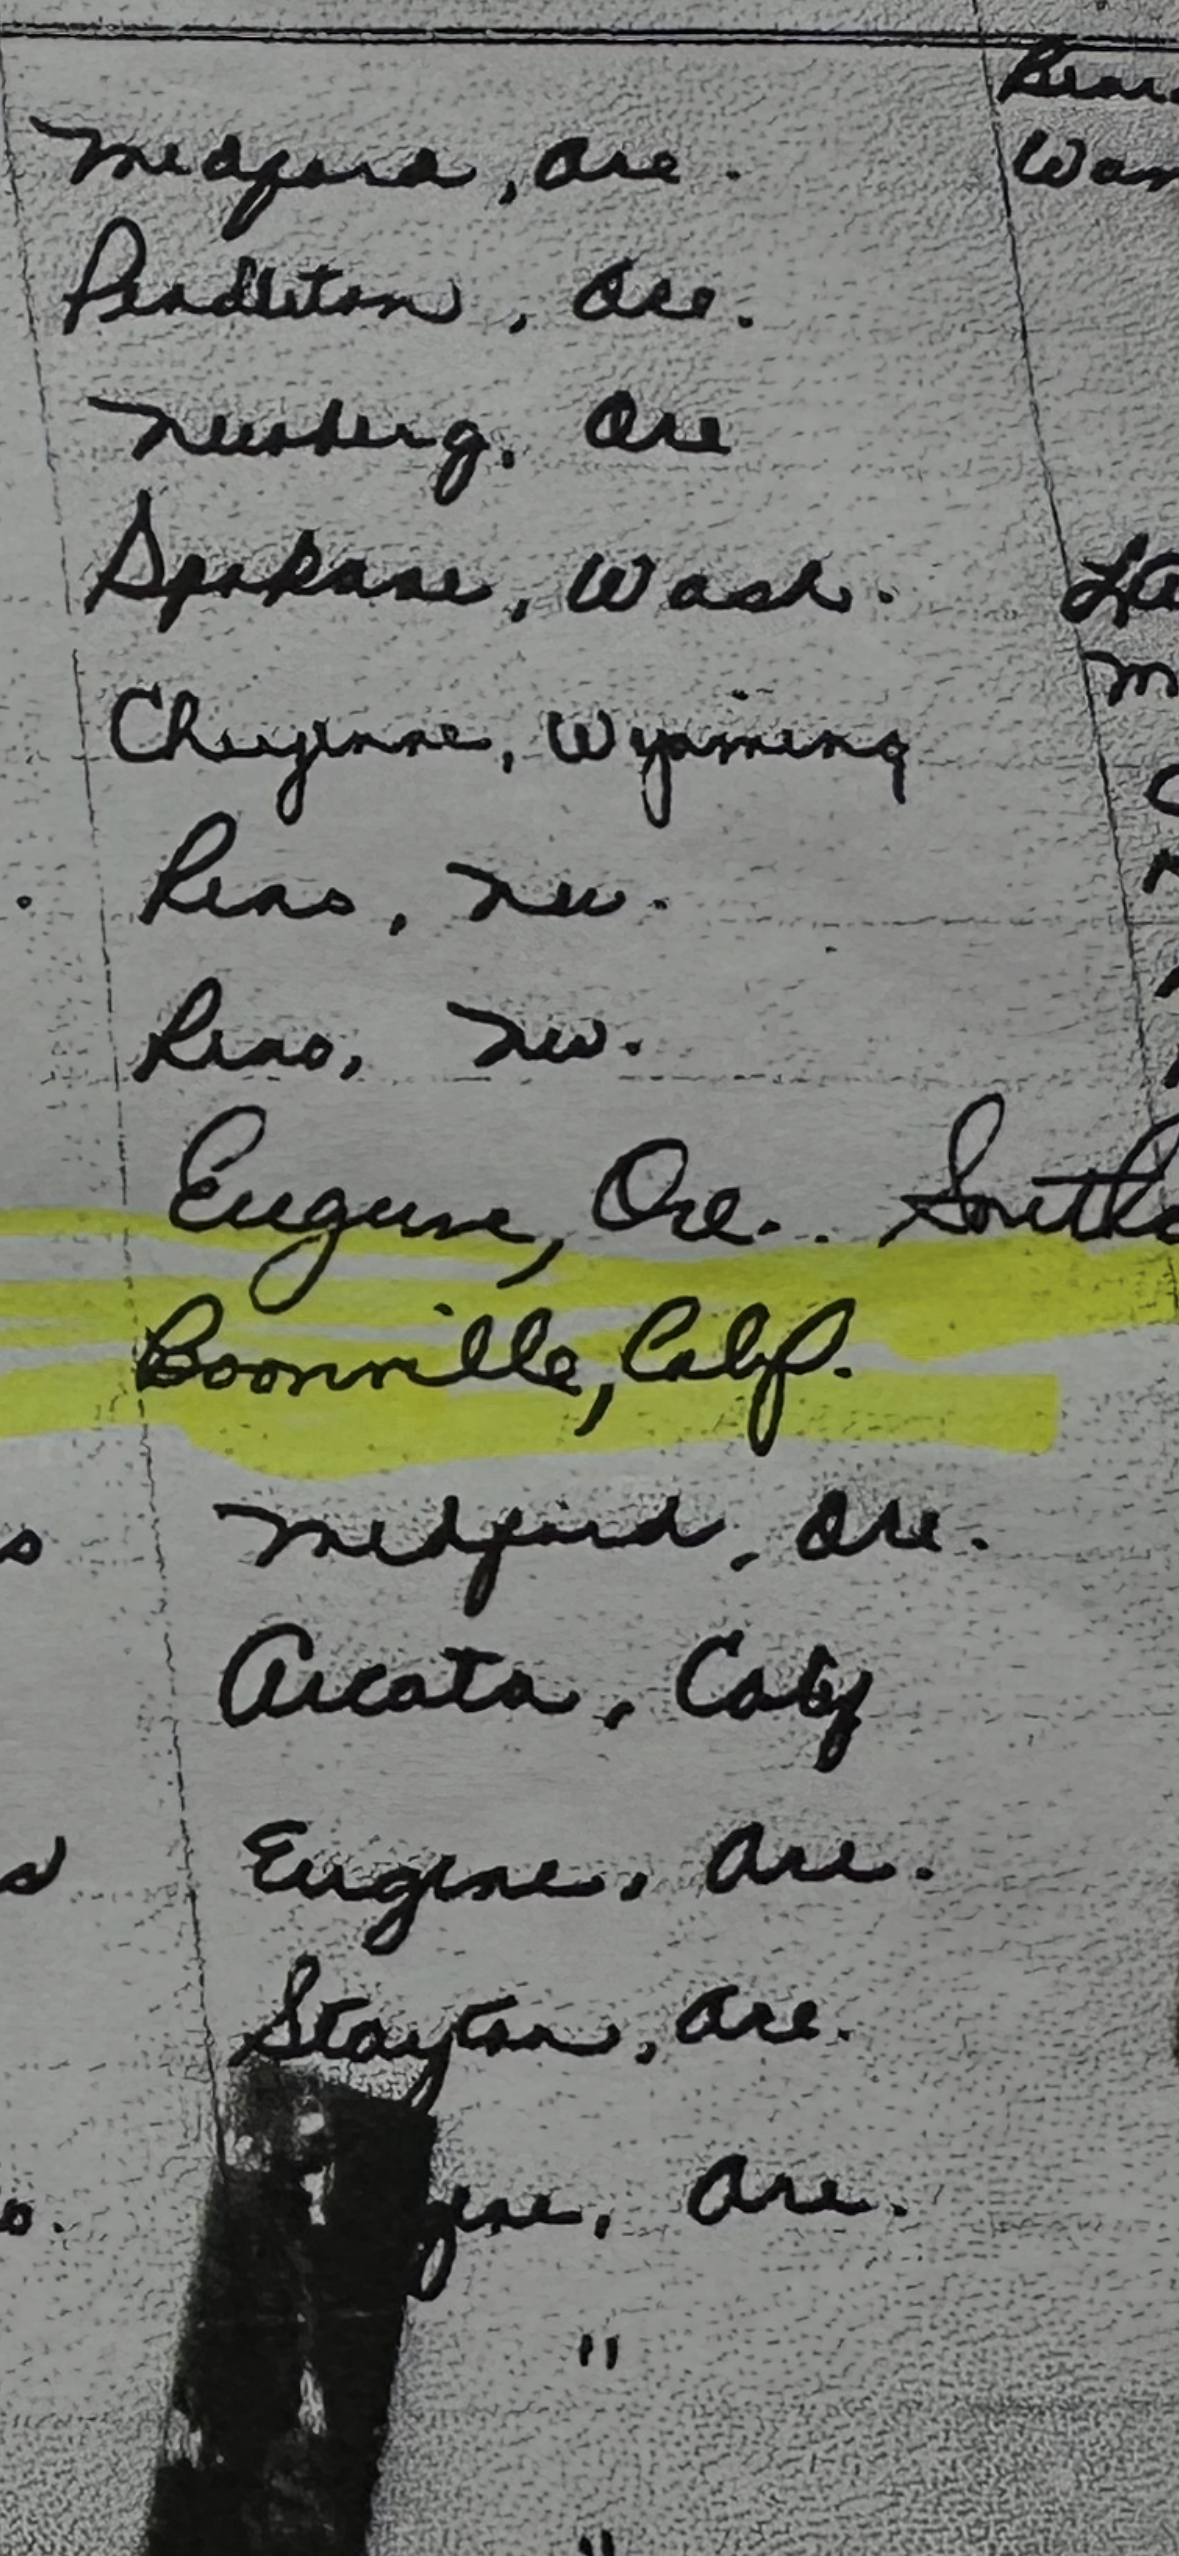 Medford, Ore.
Pendleton, Ore.
Newberg, Ore
Spokane, Wash.
Cheyenne, Wyoming
Reno, Nev.
Reno, Nev.
Eugene, Ore.
Boonville, Calif.
Medford, Ore.
Arcata, Calif
Eugene, Ore.
Stayton, Ore.
gene, Ore.
"
"